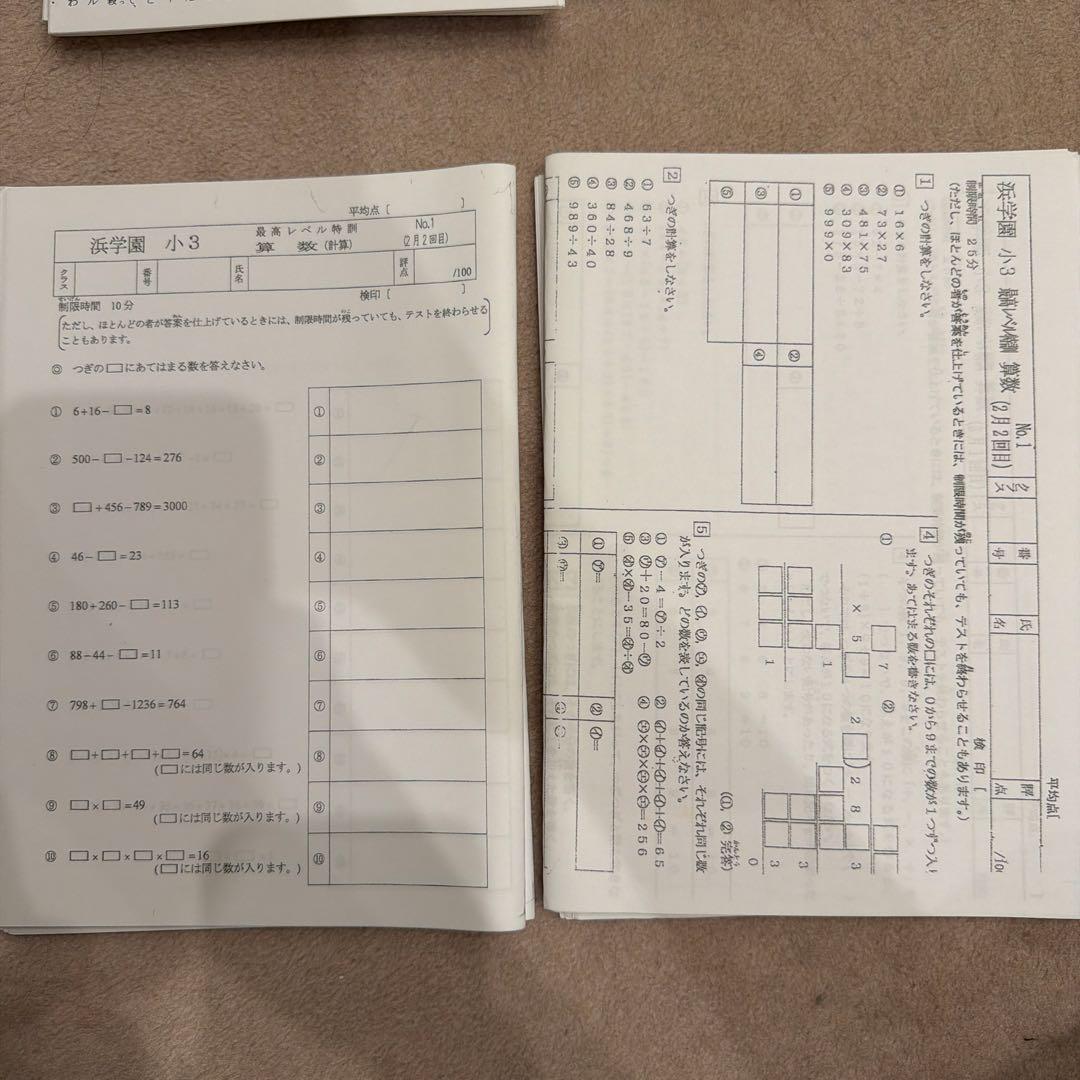 平均点〔 〕
浜学園 小3 最高レベル特訓 算数(計算) No.1 (2月2回目)
クラス 番号 氏名 評点 /100
検印〔 〕
制限時間 10分
(ただし、ほとんどの者が答案を仕上げているときには、制限時間が残っていても、テストを終わらせる
こともあります。)
◎ つぎの□にあてはまる数を答えなさい。
① 6+16-□=8
② 500-□-124=276
③ □+456-789=3000
④ 46-□=23
⑤ 180+260-□=113
⑥ 88-44-□=11
⑦ 798+□-1236=764
⑧ □+□+□+□=64
(□には同じ数が入ります。)
⑨ □×□=49
(□には同じ数が入ります。)
⑩ □×□×□×□=16
(□には同じ数が入ります。)
①
②
③
④
⑤
⑥
⑦
⑧
⑨
⑩
平均点〔
浜学園 小3 最高レベル特訓 算数 No.1 (2月2回目) クラス 番号 氏名 評点
検印〔
制限時間 25分
(ただし、ほとんどの者が答案を仕上げているときには、制限時間が残っていても、テストを終わらせることもあります。)
1 つぎの計算をしなさい。
① 16×6
② 73×27
③ 481×75
④ 309×83
⑤ 999×0
① ②
③ ④
⑤
2 つぎの計算をしなさい。
① 63÷7
② 468÷9
③ 84÷28
④ 360÷40
⑤ 989÷43
4 つぎのそれぞれの□には、0から9までの数が1つずつ入り
ます。あてはまる数を書きなさい。
① □7
× 5□
□1
1
② 2□)28□3
3
3
0
(①、② 完答)
5 つぎの㋐、㋑、㋒、㋓、㋔の同じ記号には、それぞれ同じ数
が入ります。どの数を表しているのか答えなさい。
① ㋐-4=㋐÷2
② ㋑+㋑+㋑+㋑+㋑=65
③ ㋒+20=80-㋒
④ ㋓×㋓×㋓×㋓=256
⑤ ㋔×㋔-35=㋔÷㋔
① ㋐=
② ㋑=